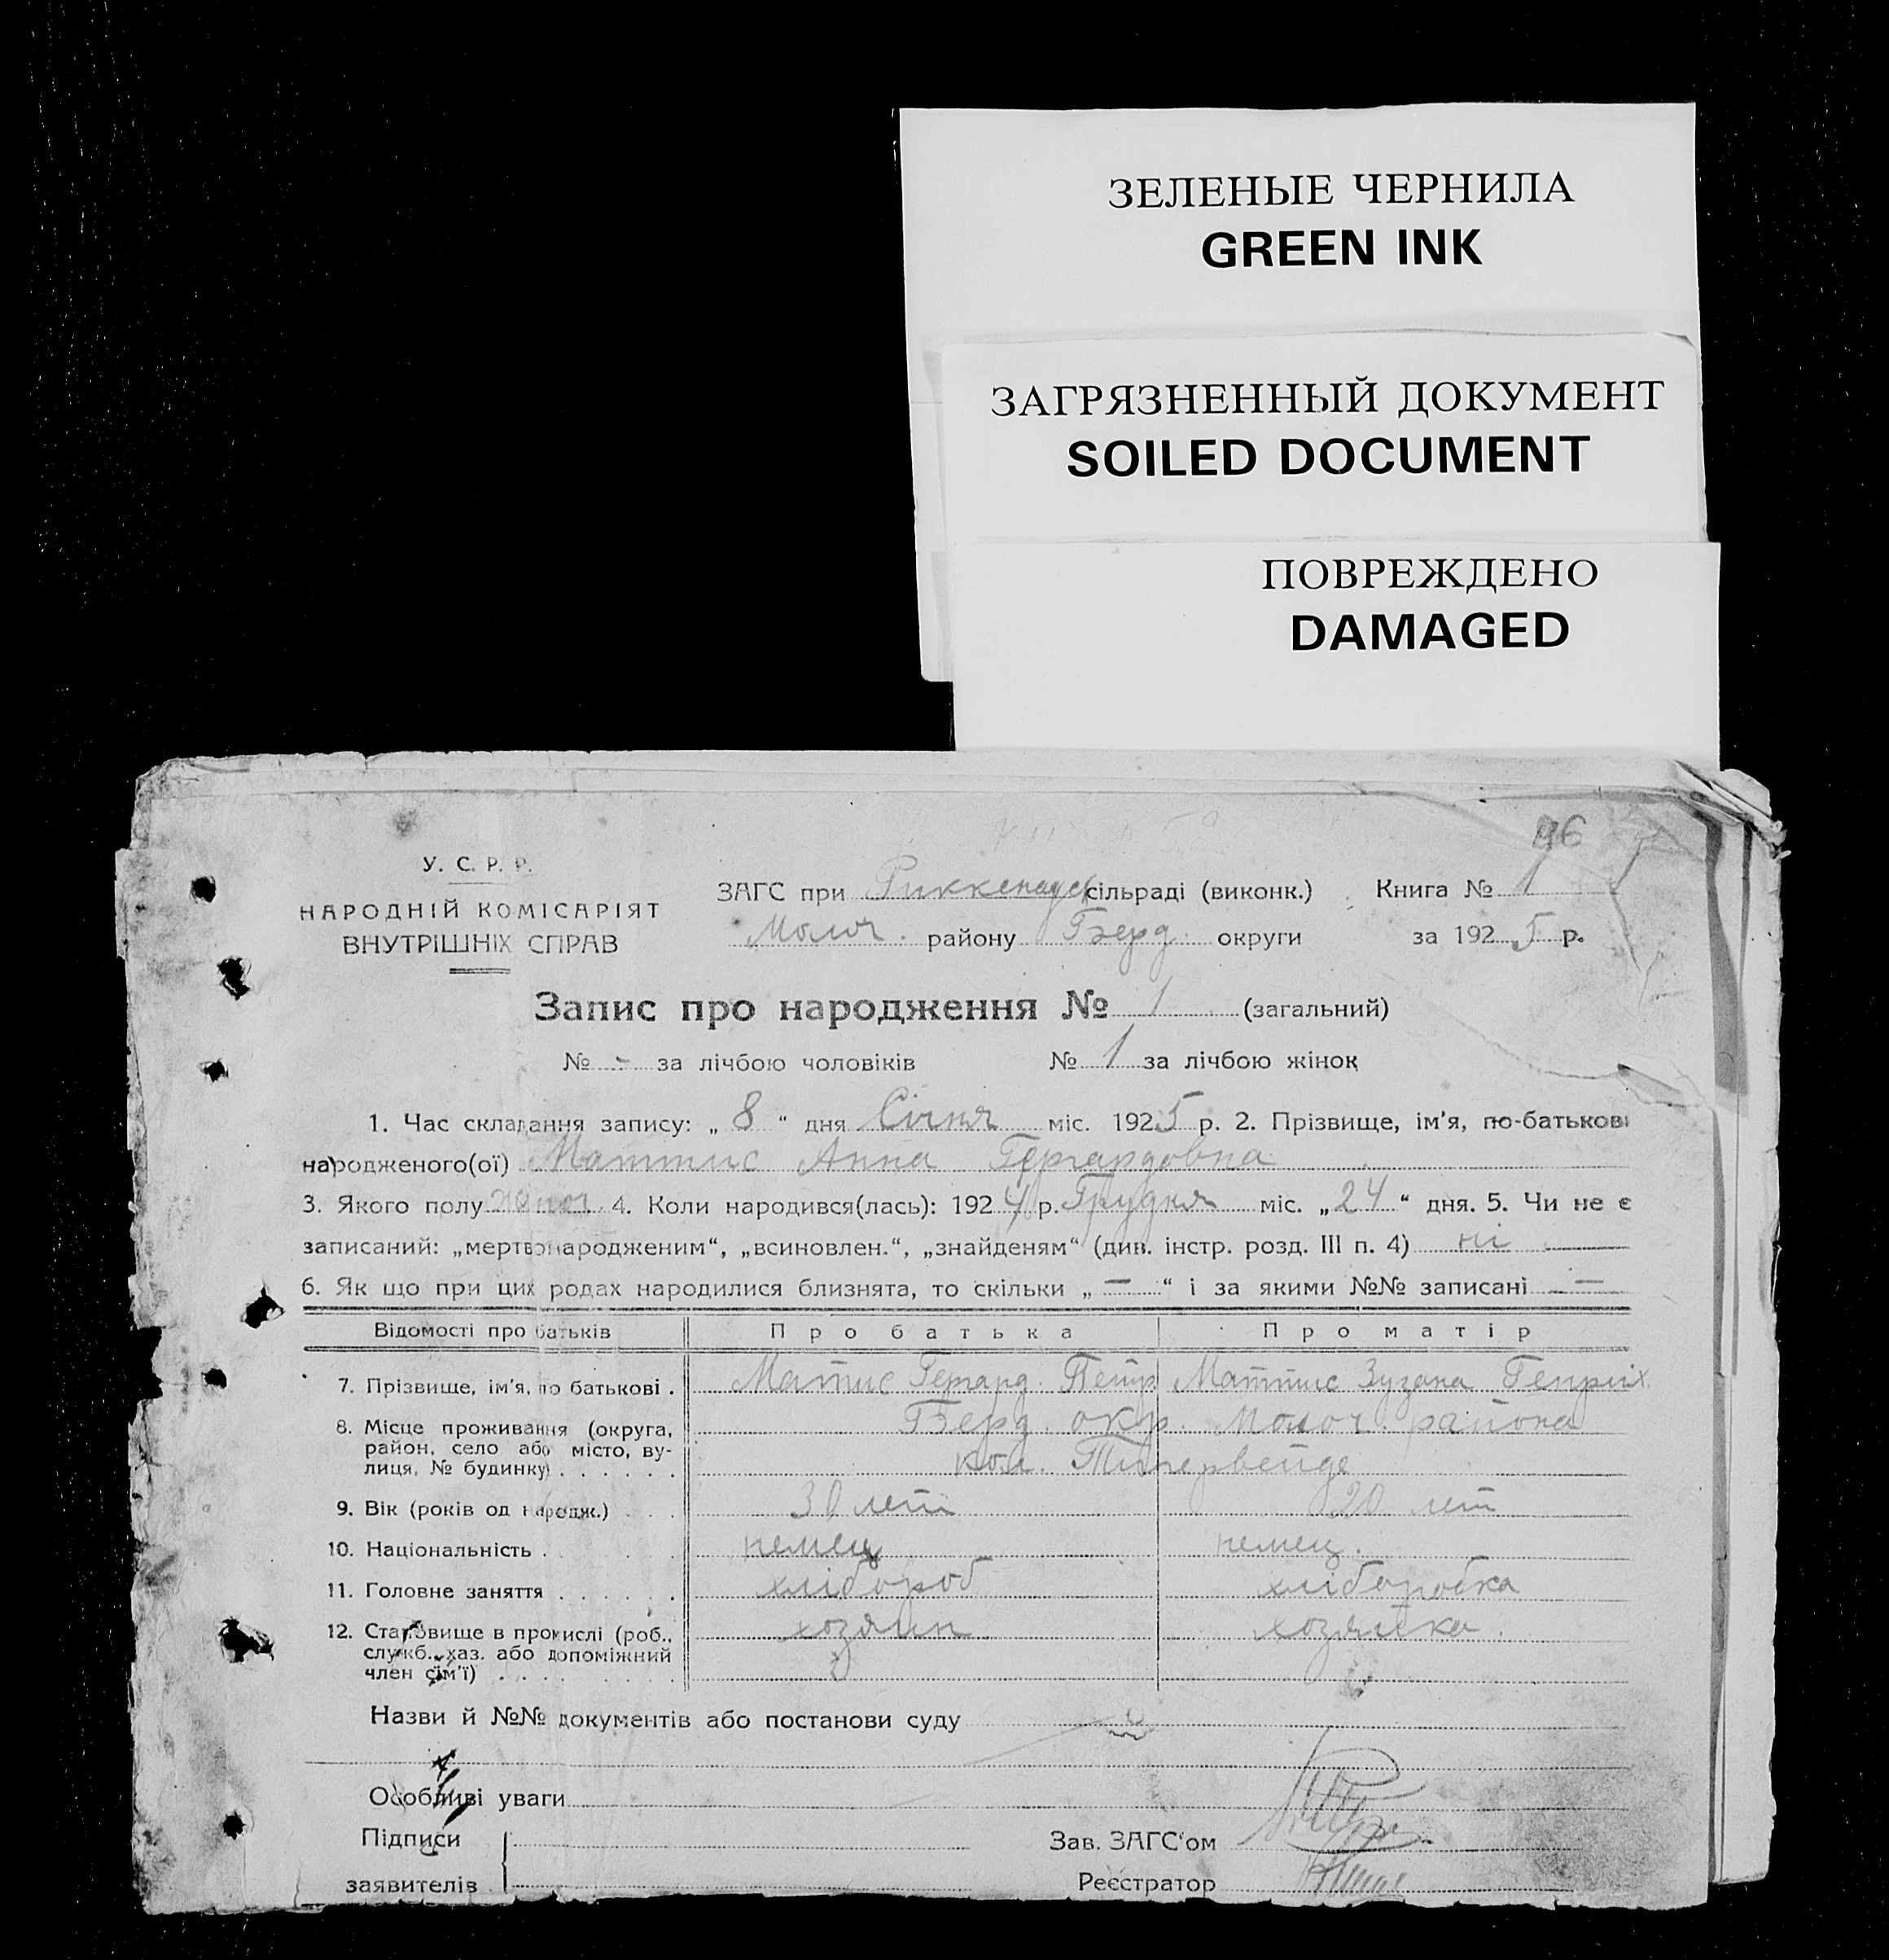 ЗЕЛЕНЫЕ ЧЕРНИЛА
GREEN INK
ЗАГРЯЗНЕННЫЙ ДОКУМЕНТ
SOILED DOCUMENT
ПОВРЕЖДЕНО
DAMAGED
96
У. С. Р. Р.
НАРОДНІЙ КОМІСАРІЯТ
ВНУТРІШНІХ СПРАВ
ЗАГС при Риккенауск сільраді (виконк.) Книга № 1
Молоч. району Берд. округи за 1925 р.
Запис про народження № 1 (загальний)
№ - за лічбою чоловіків № 1 за лічбою жінок
1. Час складання запису: „ 8 “ дня Січня міс. 1925 р. 2. Прізвище, ім'я, по-батькові
народженого(ої) Маттис Анна Гергардовна
3. Якого полу жіноч. 4. Коли народився(лась): 1924 р. Грудня міс. „ 24 “ дня. 5. Чи не є
записаний: „мертвонародженим“, „всиновлен.“, „знайденям“ (див. інстр. розд. III п. 4) ні
6. Як що при цих родах народилися близнята, то скільки „ — “ і за якими №№ записані —
Відомості про батьків Про батька Про матір
7. Прізвище, ім'я, по батькові . Матис Гергард. Петр. Маттис Зузана Генріх.
8. Місце проживання (округа, Берд. окр. Молоч. района
район, село або місто, ву-
лиця, № будинку) . . . . . . кол. Тигервейде
9. Вік (років од народж.) . . . 30 лет 20 лет
10. Національність . немец немец.
11. Головне заняття . . . . . . хлібороб хліборобка
12. Становище в промислі (роб., хозяин хозяйка.
служб., хаз. або допоміжний
член сім'ї) . . . .
Назви й №№ документів або постанови суду
Особливі уваги
Підписи Зав. ЗАГС'ом
заявителів Реєстратор